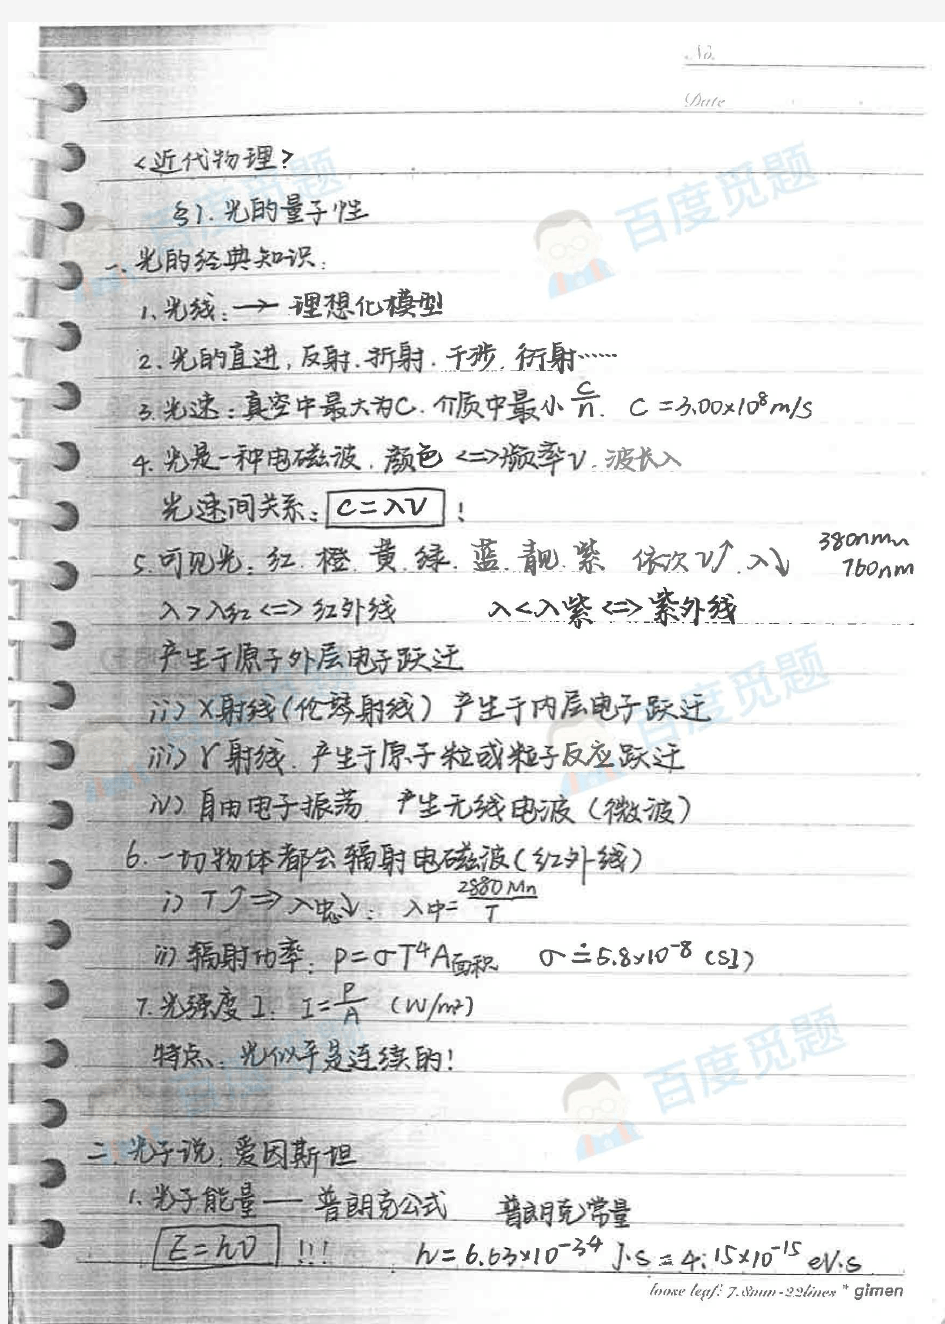 No.
Date
<近代物理>
§1. 光的量子性
一、光的经典知识:
1、光线: → 理想化模型
2、光的直进, 反射. 折射. 干涉. 衍射……
3、光速: 真空中最大为C. 介质中最小 C/n. C=3.00×10⁸m/s
4. 光是一种电磁波. 颜色 <=>频率ν. 波长λ
光速间关系: C=λν !
5. 可见光: 红. 橙. 黄. 绿. 蓝. 靛. 紫 依次ν↑. λ↓ 380nm~760nm
λ>λ红<=>红外线 λ<λ紫<=>紫外线
产生于原子外层电子跃迁
ii) X射线(伦琴射线) 产生于内层电子跃迁
iii) γ射线. 产生于原子粒或粒子反应跃迁
iv) 自由电子振荡. 产生无线电波 (微波)
6. 一切物体都会辐射电磁波(红外线)
i) T↑=> ↓: λ中=2880Mn/T
ii) 辐射功率: P=σT⁴A面积 σ≐5.8×10⁻⁸ (SI)
7. 光强度I. I=P/A (W/m²)
特点: 光似乎是连续的!
二. 光子说: 爱因斯坦
1. 光子能量—普朗克公式 普朗克常量
E=hν !!! h=6.63×10⁻³⁴ J·s=4.15×10⁻¹⁵ eV·s
loose leaf: 7.8mm-22lines * gimen
百度觅题
百度觅题
百度觅题
百度觅题
百度觅题
百度觅题